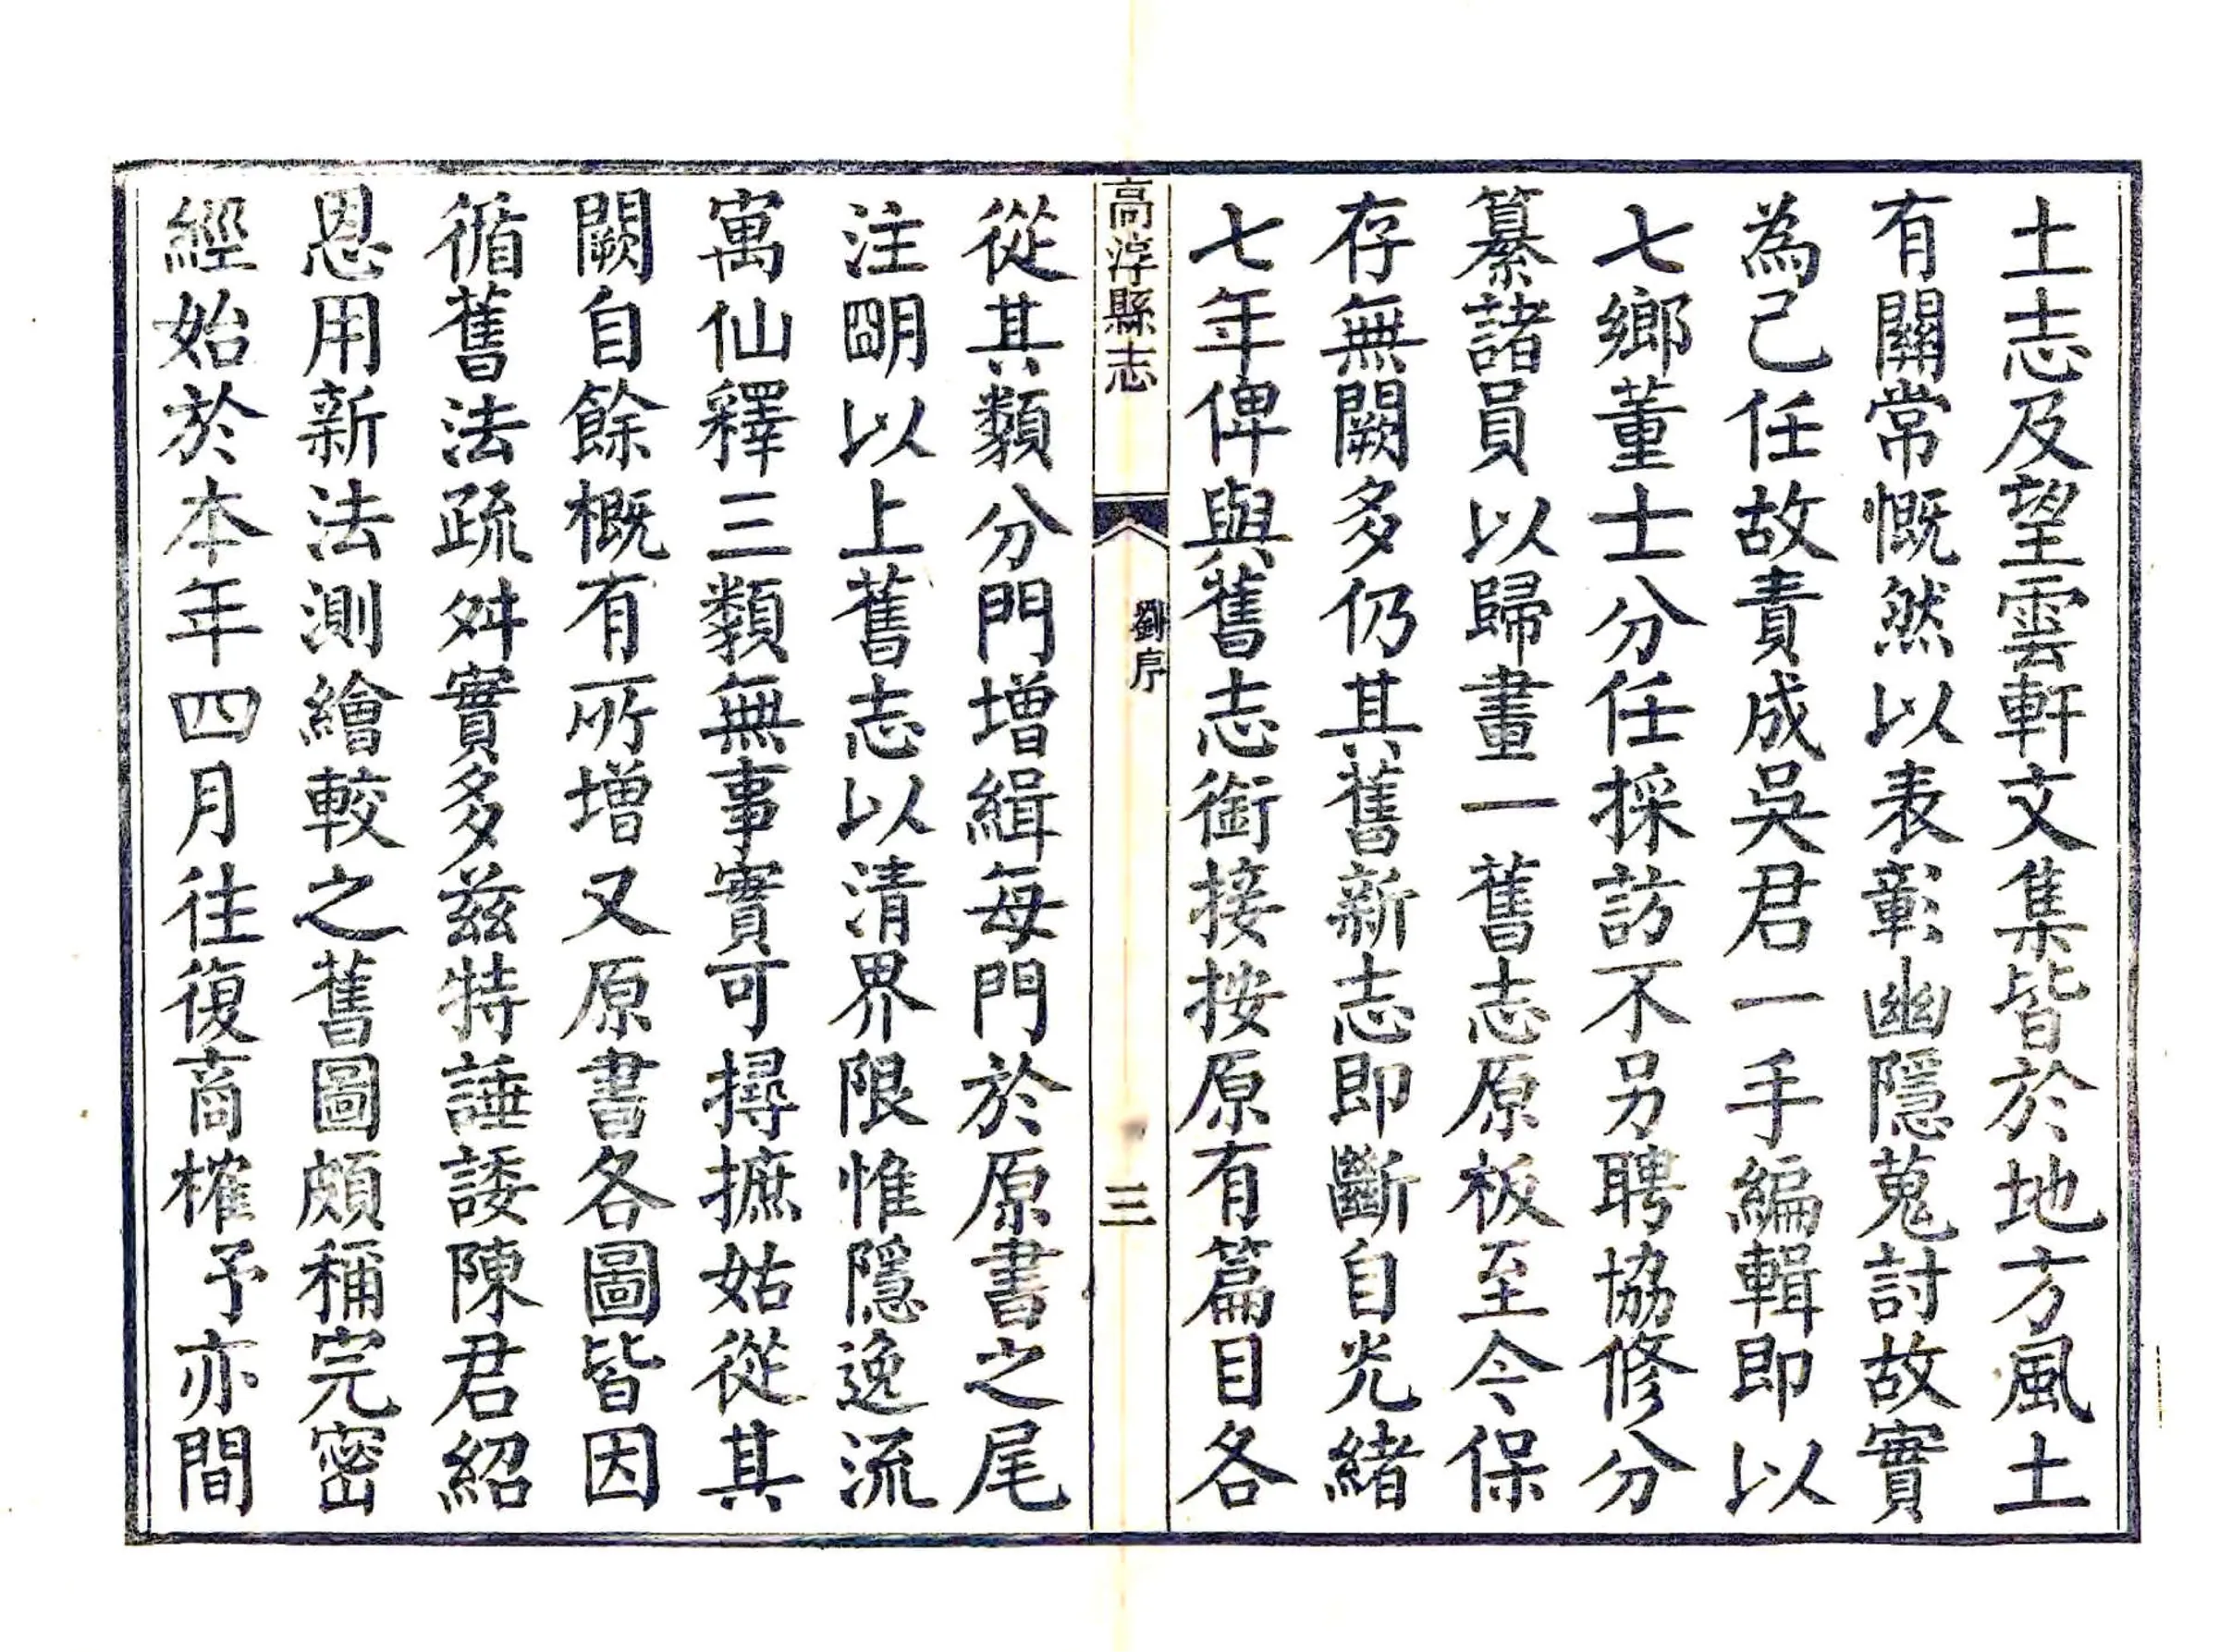 土志及望雲軒文集皆於地方風土
有關常慨然以表彰幽隱蒐討故實
為己任故責成吳君一手編輯即以
七鄉董士分任採訪不另聘協修分
纂諸員以歸畫一舊志原板至今保
存無闕多仍其舊新志即斷自光緒
七年俾與舊志銜接按原有篇目各
高淳縣志
劉序
三
從其類分門增緝每門於原書之尾
注朙以上舊志以清界限惟隱逸流
寓仙釋三類無事實可撏摭姑從其
闕自餘概有所增又原書各圖皆因
循舊法疏舛實多茲特諈諉陳君紹
恩用新法測繪較之舊圖頗稱完密
經始於本年四月往復商榷予亦間